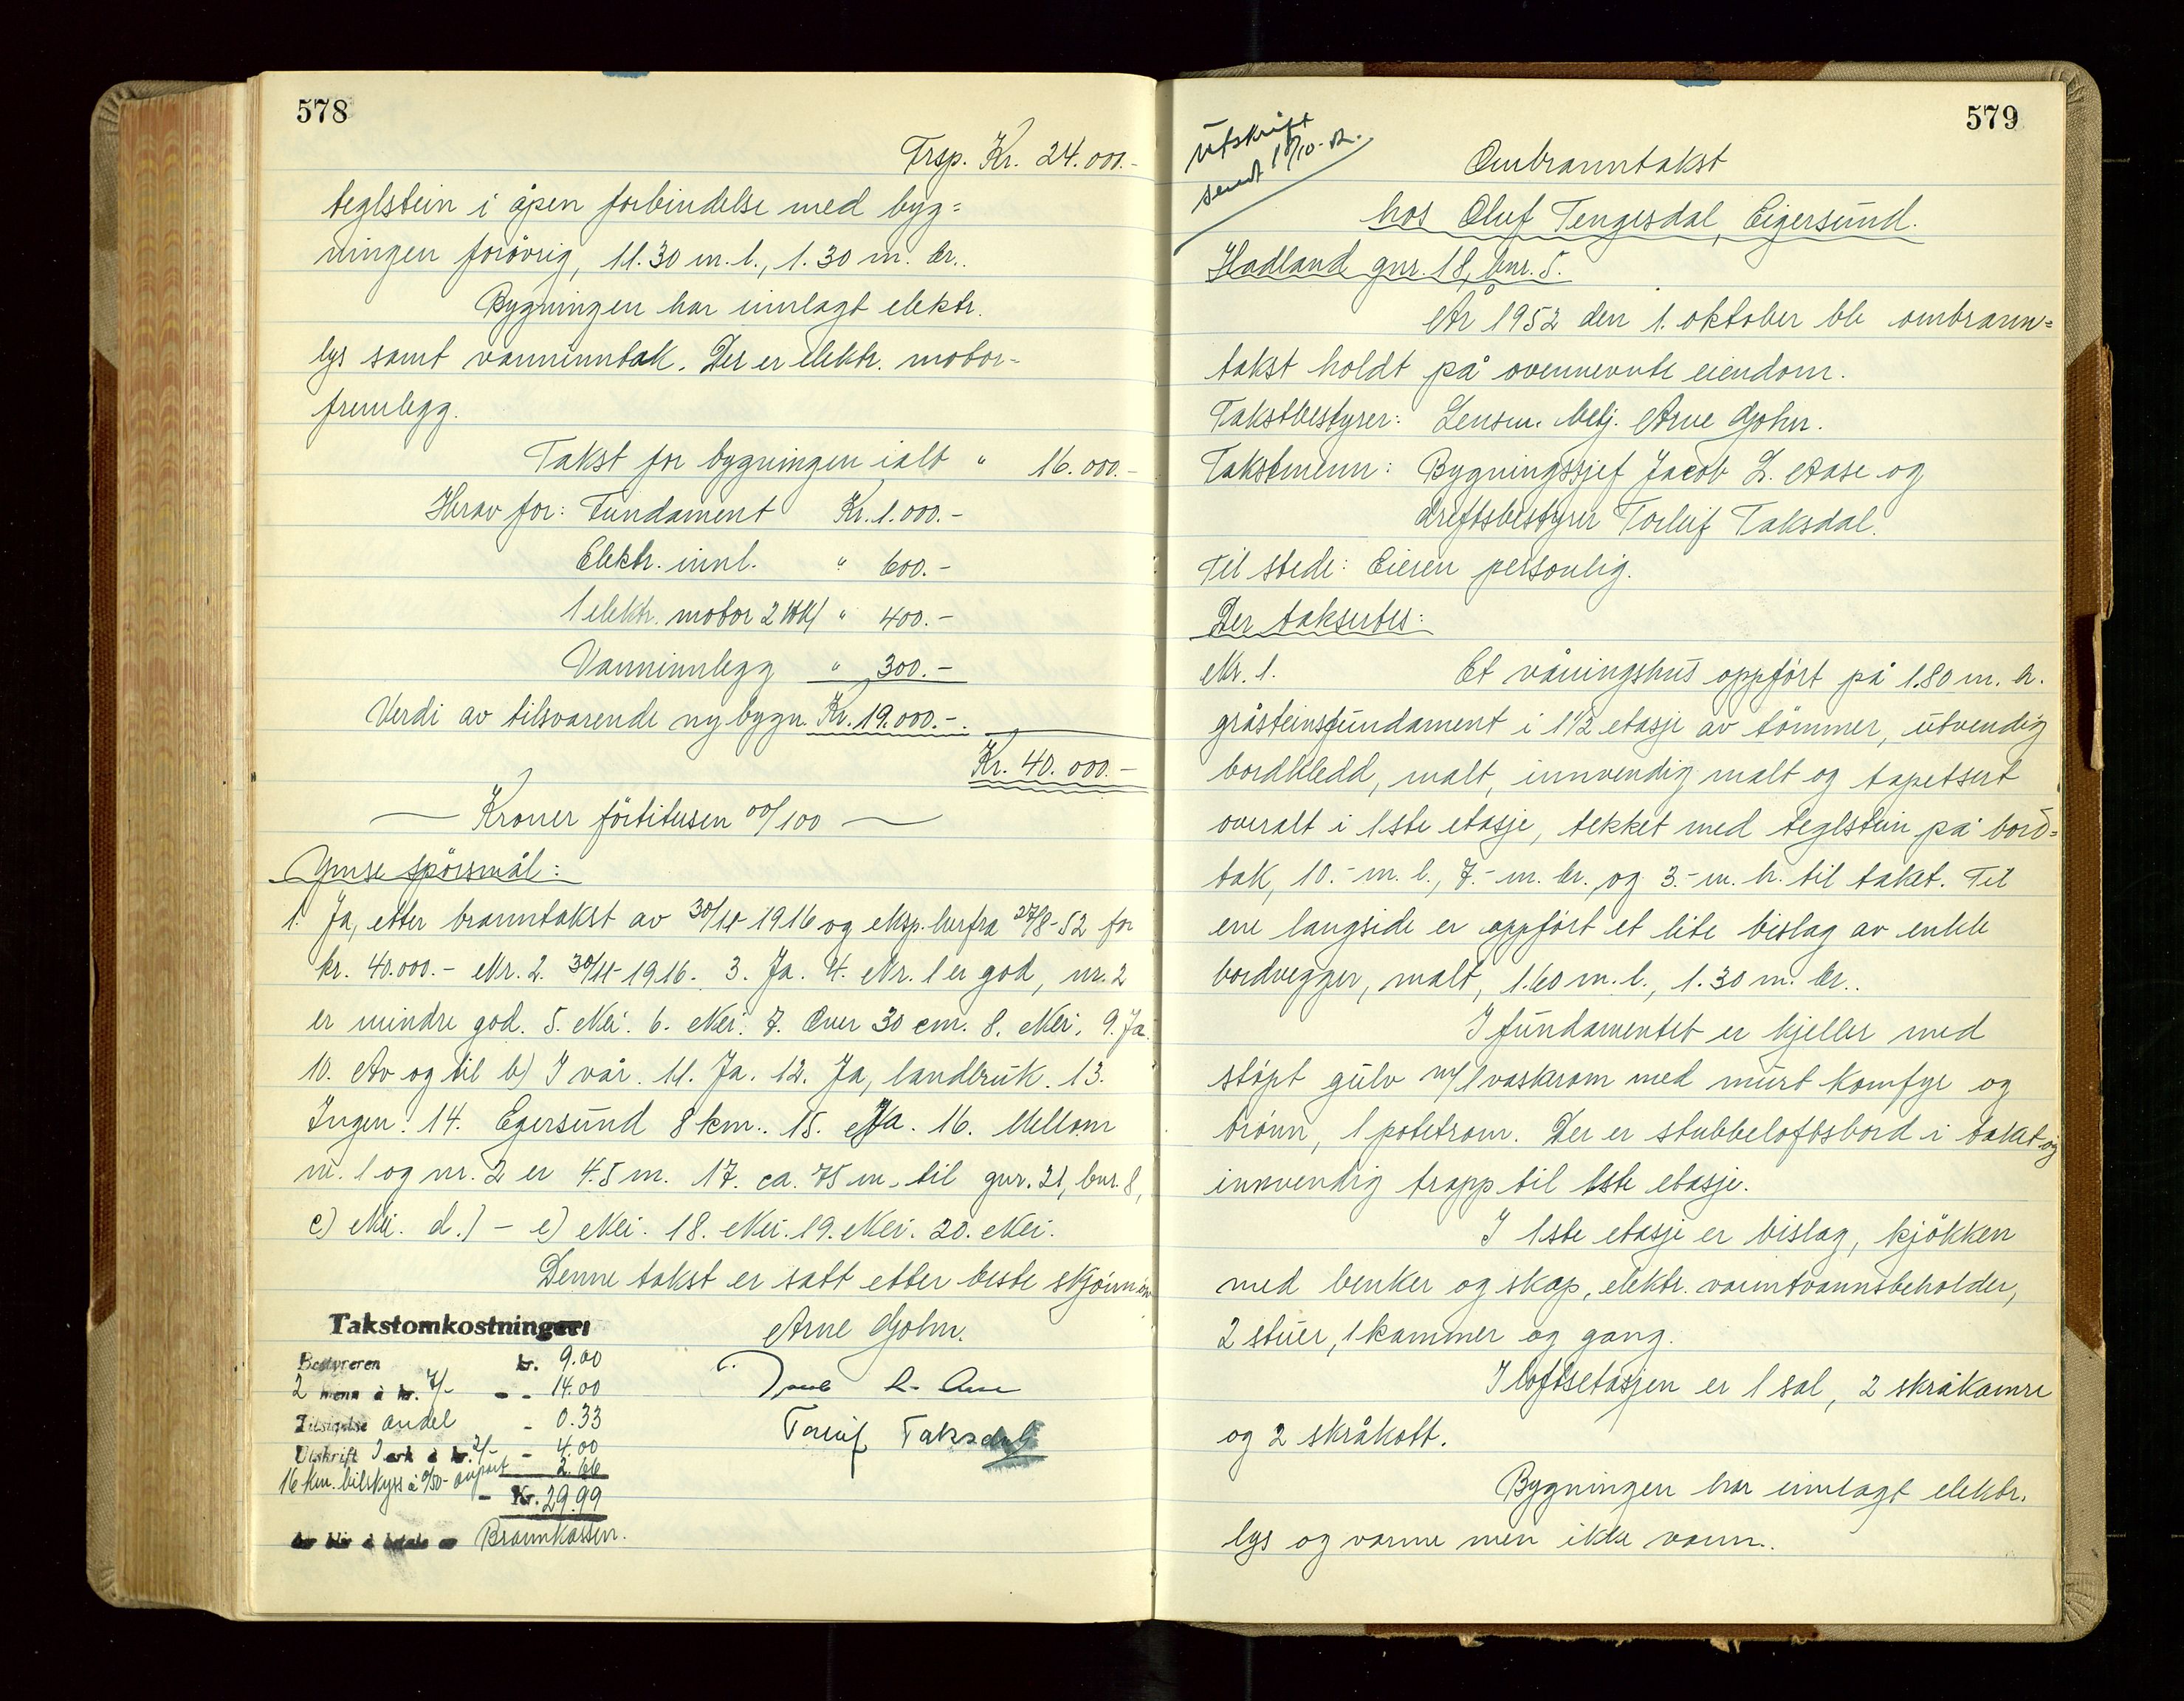 578
Trsp. Kr. 24.000.-
teglstein i åpen forbindelse med byg=
ningen forövrig, 11.30 m. l., 1.30 m. br..
Bygningen har innlagt elektr.
lys samt vanninntak. Der er elektr. motor-
fremlegg.
Takst for bygningen ialt " 16.000.-
Herav for: Fundament Kr. 1.000.-
Elektr. innl. " 600.-
1 elektr. motor 2 " 400.-
Vanninnlegg " 300.-
Verdi av tilsvarende ny bygn. Kr. 19.000.-.
Kr. 40.000.-
— Kroner förtitusen 00/100 —
Ymse spörsmål:
1. Ja, etter branntakst av 30/11-1916 og eksp. herfra 27/8-52 for
kr. 40.000.- Nr. 2. 30/11-1916. 3. Ja. 4. Nr. 1 er god, nr. 2
er mindre god. 5. Nei. 6. Nei. 7. Over 30 cm. 8. Nei. 9. Ja.
10. Av og til b) I vår. 11. Ja. 12. Ja, landbruk. 13.
Ingen. 14. Egersund 8 km.. 15. Ja. 16. Mellom
nr. 1 og nr. 2 er 4.5 m. 17. ca. 75 m. til gnr. 21, bnr. 8,
c) Nei. d.) - e) Nei. 18. Nei. 19. Nei. 20. Nei.
Denne takst er satt etter beste skjönn
Takstomkostninger:
Arne Gjohn.
Bestyreren kr. 9.00
2 menn à kr. 7/- - - 14.00
Taksdal
andel - 0.33
Utskrift 2 ark à kr. 2/- - 4.00
16 km. bilskyss à 0/50- 2.66
- Kr. 29.99
Brannkassen.
579
Utskrift
sendt 18/10-52.
Ombranntakst
hos Oluf Tengesdal, Eigersund.
Hadland gnr. 18, bnr. 5.
År 1952 den 1. oktober ble ombrann=
takst holdt på ovennevnte eiendom.
Takstbestyrer: Lensm. betj. Arne Gjohn.
Takstmenn: Bygningssjef Jacob L. Aase og
driftsbestyrer Torleif Taksdal.
Til stede: Eieren personlig.
Der takserbes:
Nr. 1. Et våningshus oppfört på 1.80 m. h.
gråsteinsfundament i 1 1/2 etasje av tömmer, utvendig
bordkledd, malt, innvendig malt og tapetsert
overalt i 1ste etasje, tekket med teglstein på bord=
tak, 10.- m. l., 7.- m. br., og 3.- m. h. til taket. Til
ene langside er oppfört et lite bislag av enkle
bordvegger, malt, 1.60 m. l., 1.30 m. br..
I fundamentet er kjeller med
stöpt gulv m/1 vaskerom med murt komfyr og
brönn, 1 potetrom. Der er stubbeloftsbord i taket og
innvendig trapp til 1ste etasje.
I 1ste etasje er bislag, kjökken
med benker og skap, elektr. varmtvannsbeholder,
2 stuer, 1 kammer og gang.
I loftsetasjen er 1 sal, 2 skråkamre
og 2 skråkott.
Bygningen har innlagt elektr.
lys og varme men ikke vann..